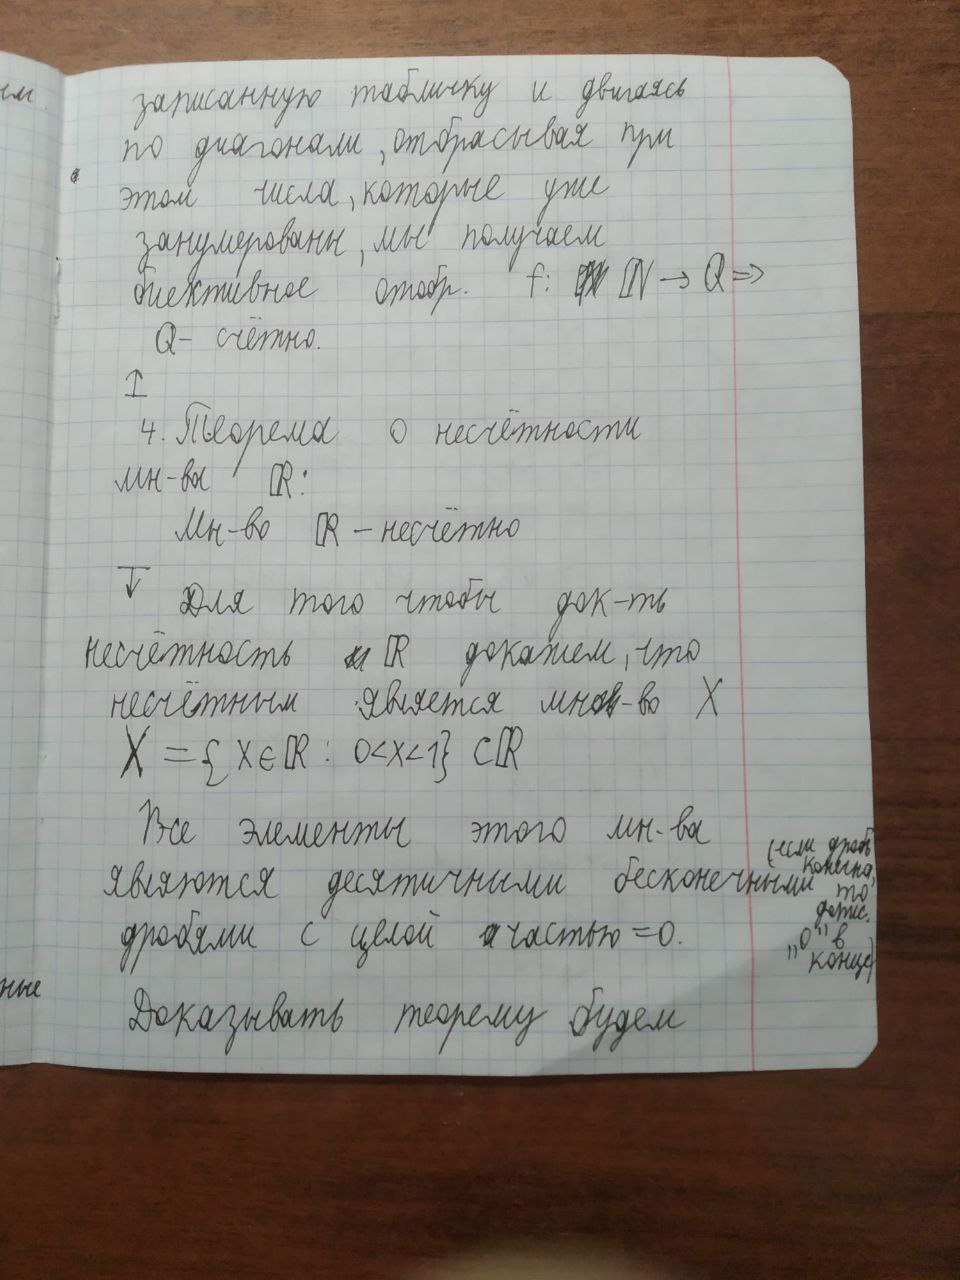 записанную табличку и двигаясь
по диагонали, отбрасывая при
этом числа, которые уже
занумерованы, мы получаем
биективное отобр. f: ℕ → Q ⇒
Q - счётно.
↥
4. Теорема о несчётности
мн-ва ℝ:
Мн-во ℝ – несчётно
↧
Для того чтобы док-ть
несчётность ℝ докажем, что
несчётным является мн-во X
X = { x ∈ ℝ : 0<x<1} ⊂ ℝ
Все элементы этого мн-ва
являются десятичными бесконечными
дробями с целой частью = 0.
(если дробь
конечна,
то
допис.
„0“ в
конце)
Доказывать теорему будем
ные